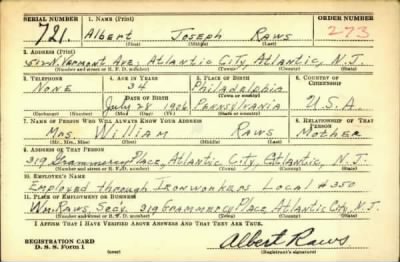 SERIAL NUMBER 1. NAME (Print) ORDER NUMBER
721. Albert Joseph Raws 273
(First) (Middle) (Last)
2. ADDRESS (Print)
N. Vermont Ave. Atlantic City, Atlantic, N.J.
(Number and street or R. F. D. number) (Town) (County) (State)
3. TELEPHONE 4. AGE IN YEARS 5. PLACE OF BIRTH 6. COUNTRY OF CITIZENSHIP
None 34 Philadelphia
DATE OF BIRTH (Town or county)
July 28 1906 Pennsylvania U.S.A
(Exchange) (Number) (Mo.) (Day) (Yr.) (State or country)
7. NAME OF PERSON WHO WILL ALWAYS KNOW YOUR ADDRESS 8. RELATIONSHIP OF THAT PERSON
Mrs. William Raws Mother
(Mr., Mrs., Miss) (First) (Middle) (Last)
9. ADDRESS OF THAT PERSON
319 Grammercy Place, Atlantic City, Atlantic, N.J.
(Number and street or R. F. D. number) (Town) (County) (State)
10. EMPLOYER'S NAME
Employed through Ironworkers Local #350
11. PLACE OF EMPLOYMENT OR BUSINESS
Wm. Raws Sec'y. 319 Grammercy Place Atlantic City N.J.
(Number and street or R. F. D. number) (Town) (County) (State)
I AFFIRM THAT I HAVE VERIFIED ABOVE ANSWERS AND THAT THEY ARE TRUE.
REGISTRATION CARD
D. S. S. Form 1 (over) Albert Raws
(Registrant's signature)